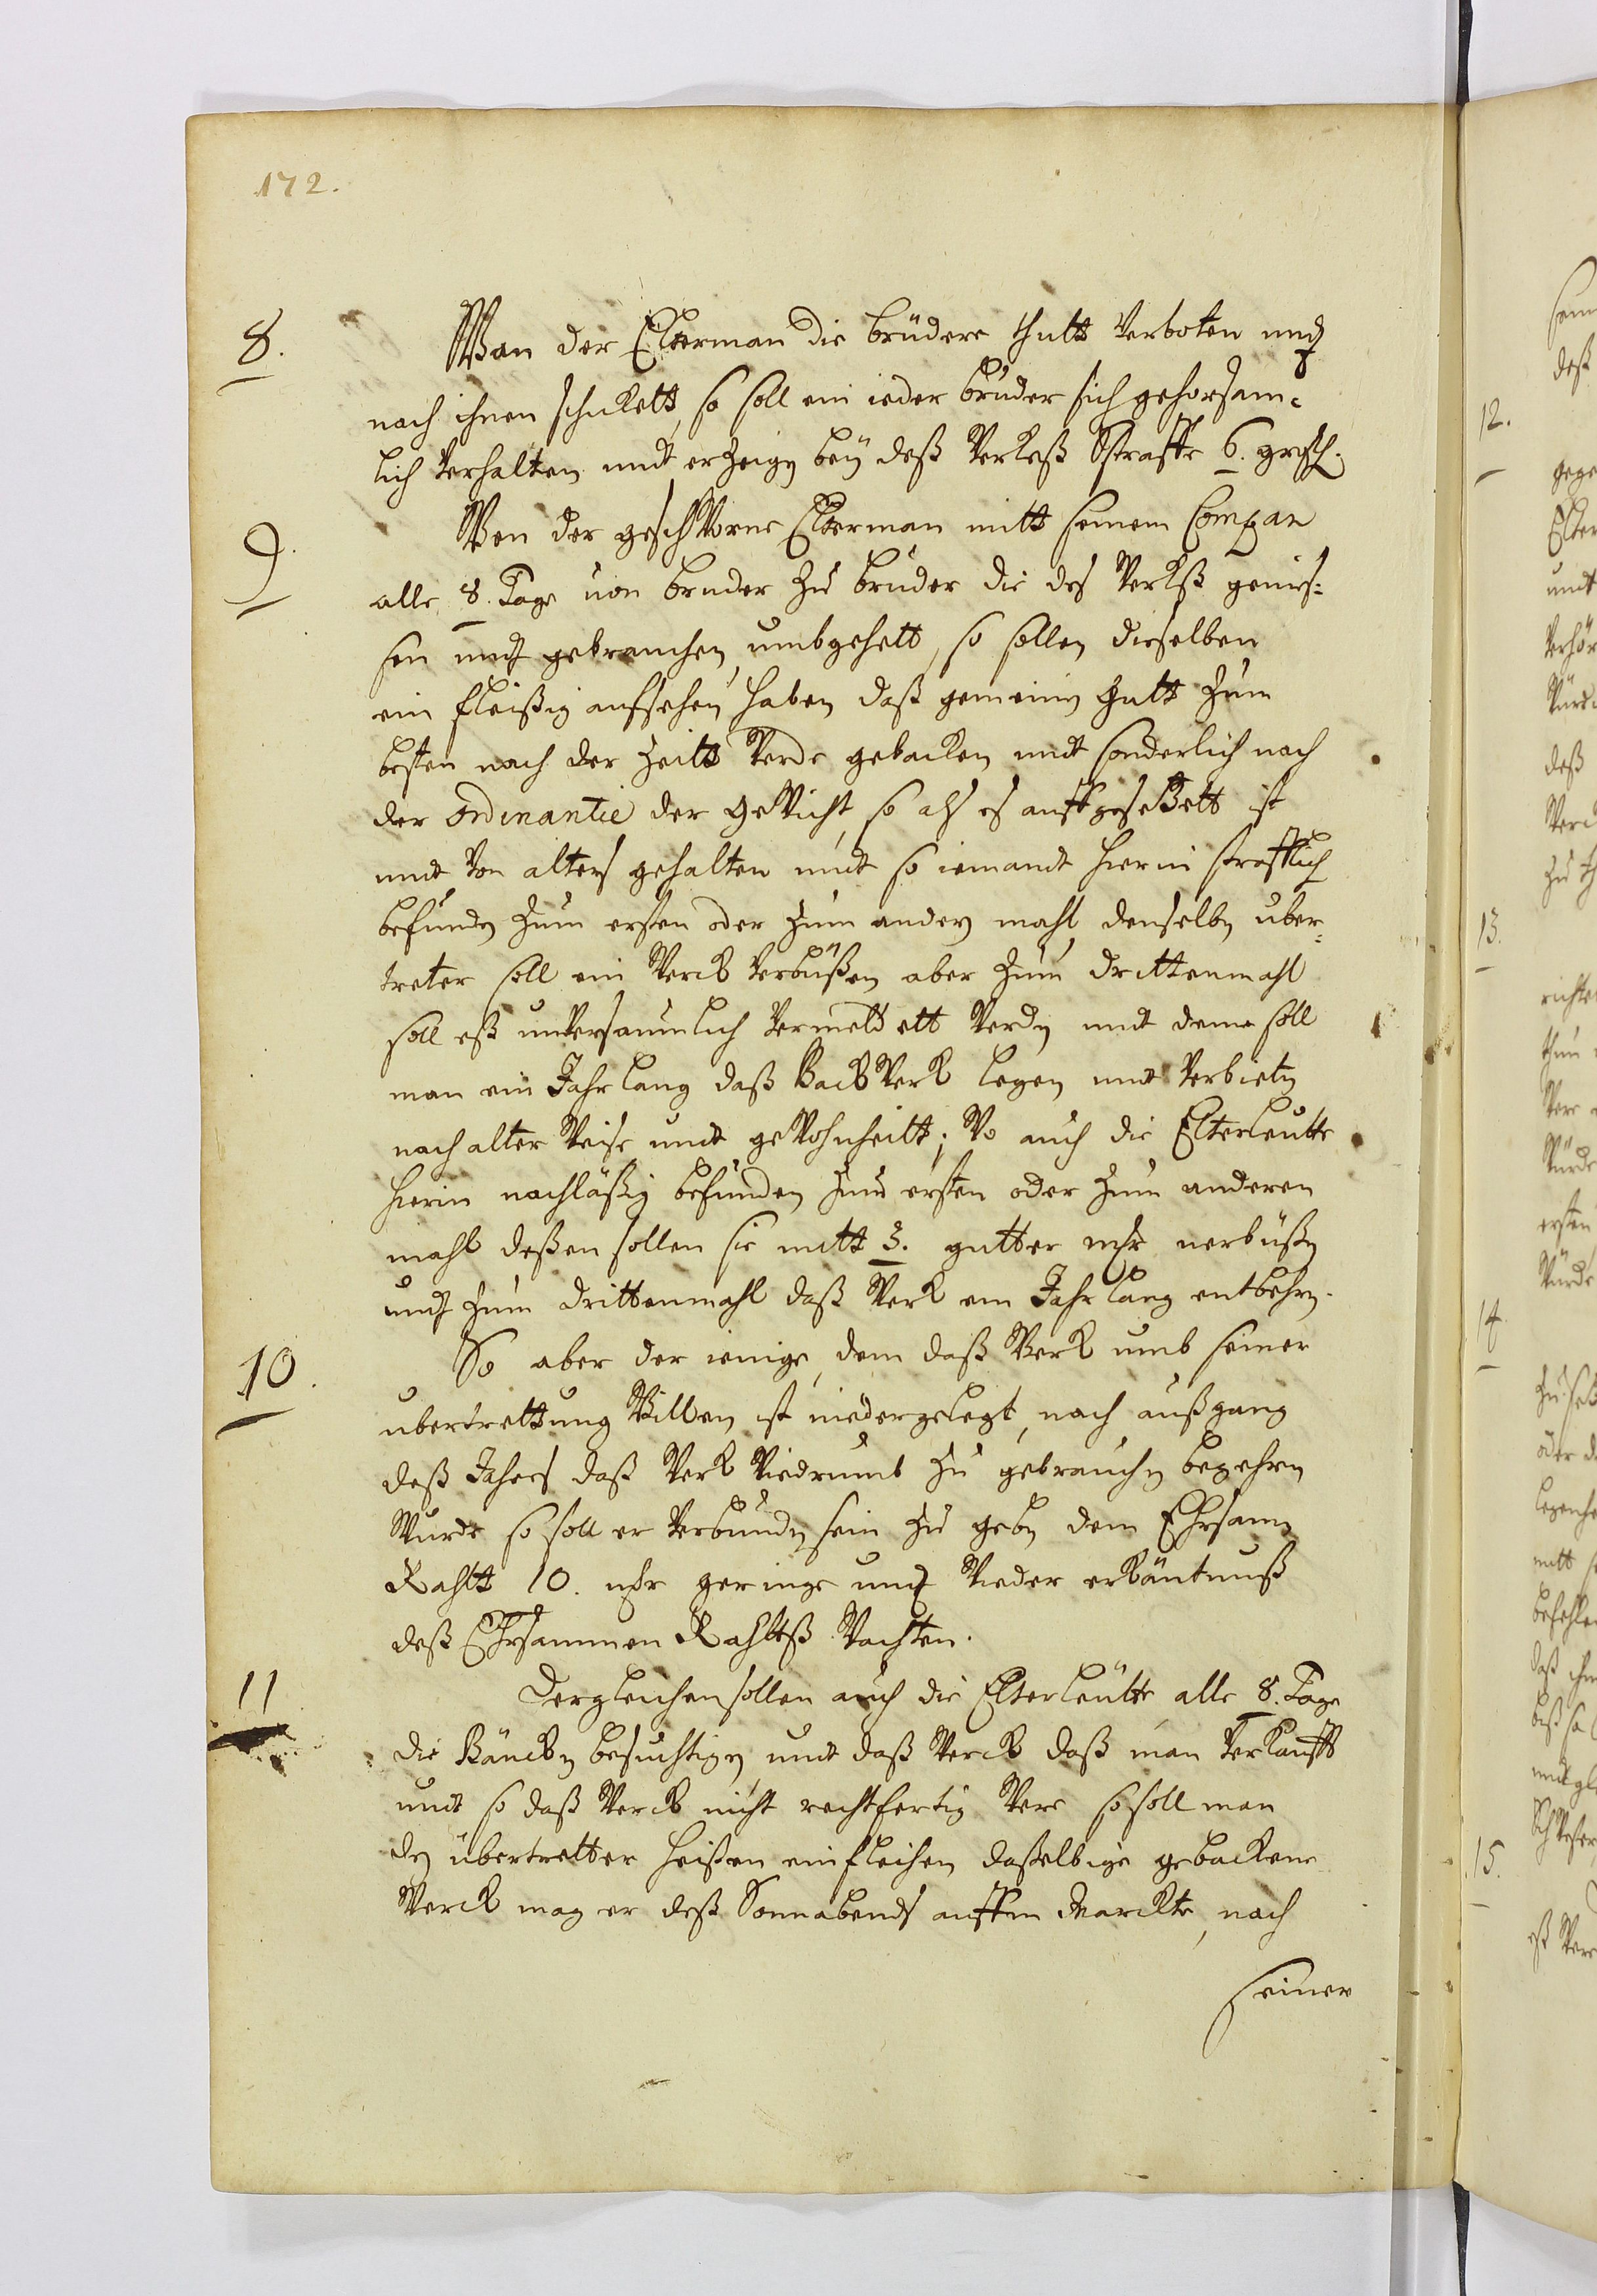 172.
8. Wan der Elterman die brüdere thutt verboten und
nach ihnen schickett, so soll ein ieder bruder sich gehorsam-
lich verhalten undt erzeigen bey deß Werckß Straffe 6. grosch.
9. Wen der geschworne Elterman mitt seinem Compan
alle 8. Tage von bruder zu bruder die des Werckß genies-
sen und gebrauchen, umbgehett, so sollen dieselben
ein fleißig aufsehen haben, daß gemeine gutt zum
besten nach der Zeitt werde gebacken undt sonderlich nach
der ordinantie der gewicht, so als es auffgesetzett ist
undt von alters gehalten undt so iemandt hierin strafflich
befunden zum ersten oder zum andern mahl denselben uber-
treter soll ein Werck verbüßen aber zum drittenmahl
soll eß unversaumlich vermeldett werden undt deme soll
man ein Jahr lang daß Backwerk legen undt verbieten
nach alter weise undt gewohnheitt; wo auch die Elterleutte
hierin nachläßig befunden zum ersten oder zum anderen
mahl deßen sollen sie mitt 3. gutter mk verbüßen
undt zum drittenmahl daß Werk ein Jahr lang entbehren.
10. So aber der ienige, dem daß Werk umb seiner
ubertrettung willen ist niedergelegt, nach außgang
deß Jahres daß Werk wiedrumb zu gebrauchen begehren
wurde so soll er verbunden sein zu geben dem Ehrsamen
Rahtt 10. mk geringe undt wieder erkäntnuß
deß Ehrsammen Rahtteß wachten.
11 Dergleichen sollen auch die Elterleutte alle 8. Tage
die Bäncken besuchtigen undt daß Werck daß man verkaufft
undt so daß Werck nicht rechtfertig were so soll man
den übertretter heißen einsleihen daßelbige gebackene
Werck mag er deß Sonnabends auffm Marckte, nach
seiner
12.
13.
14
15.